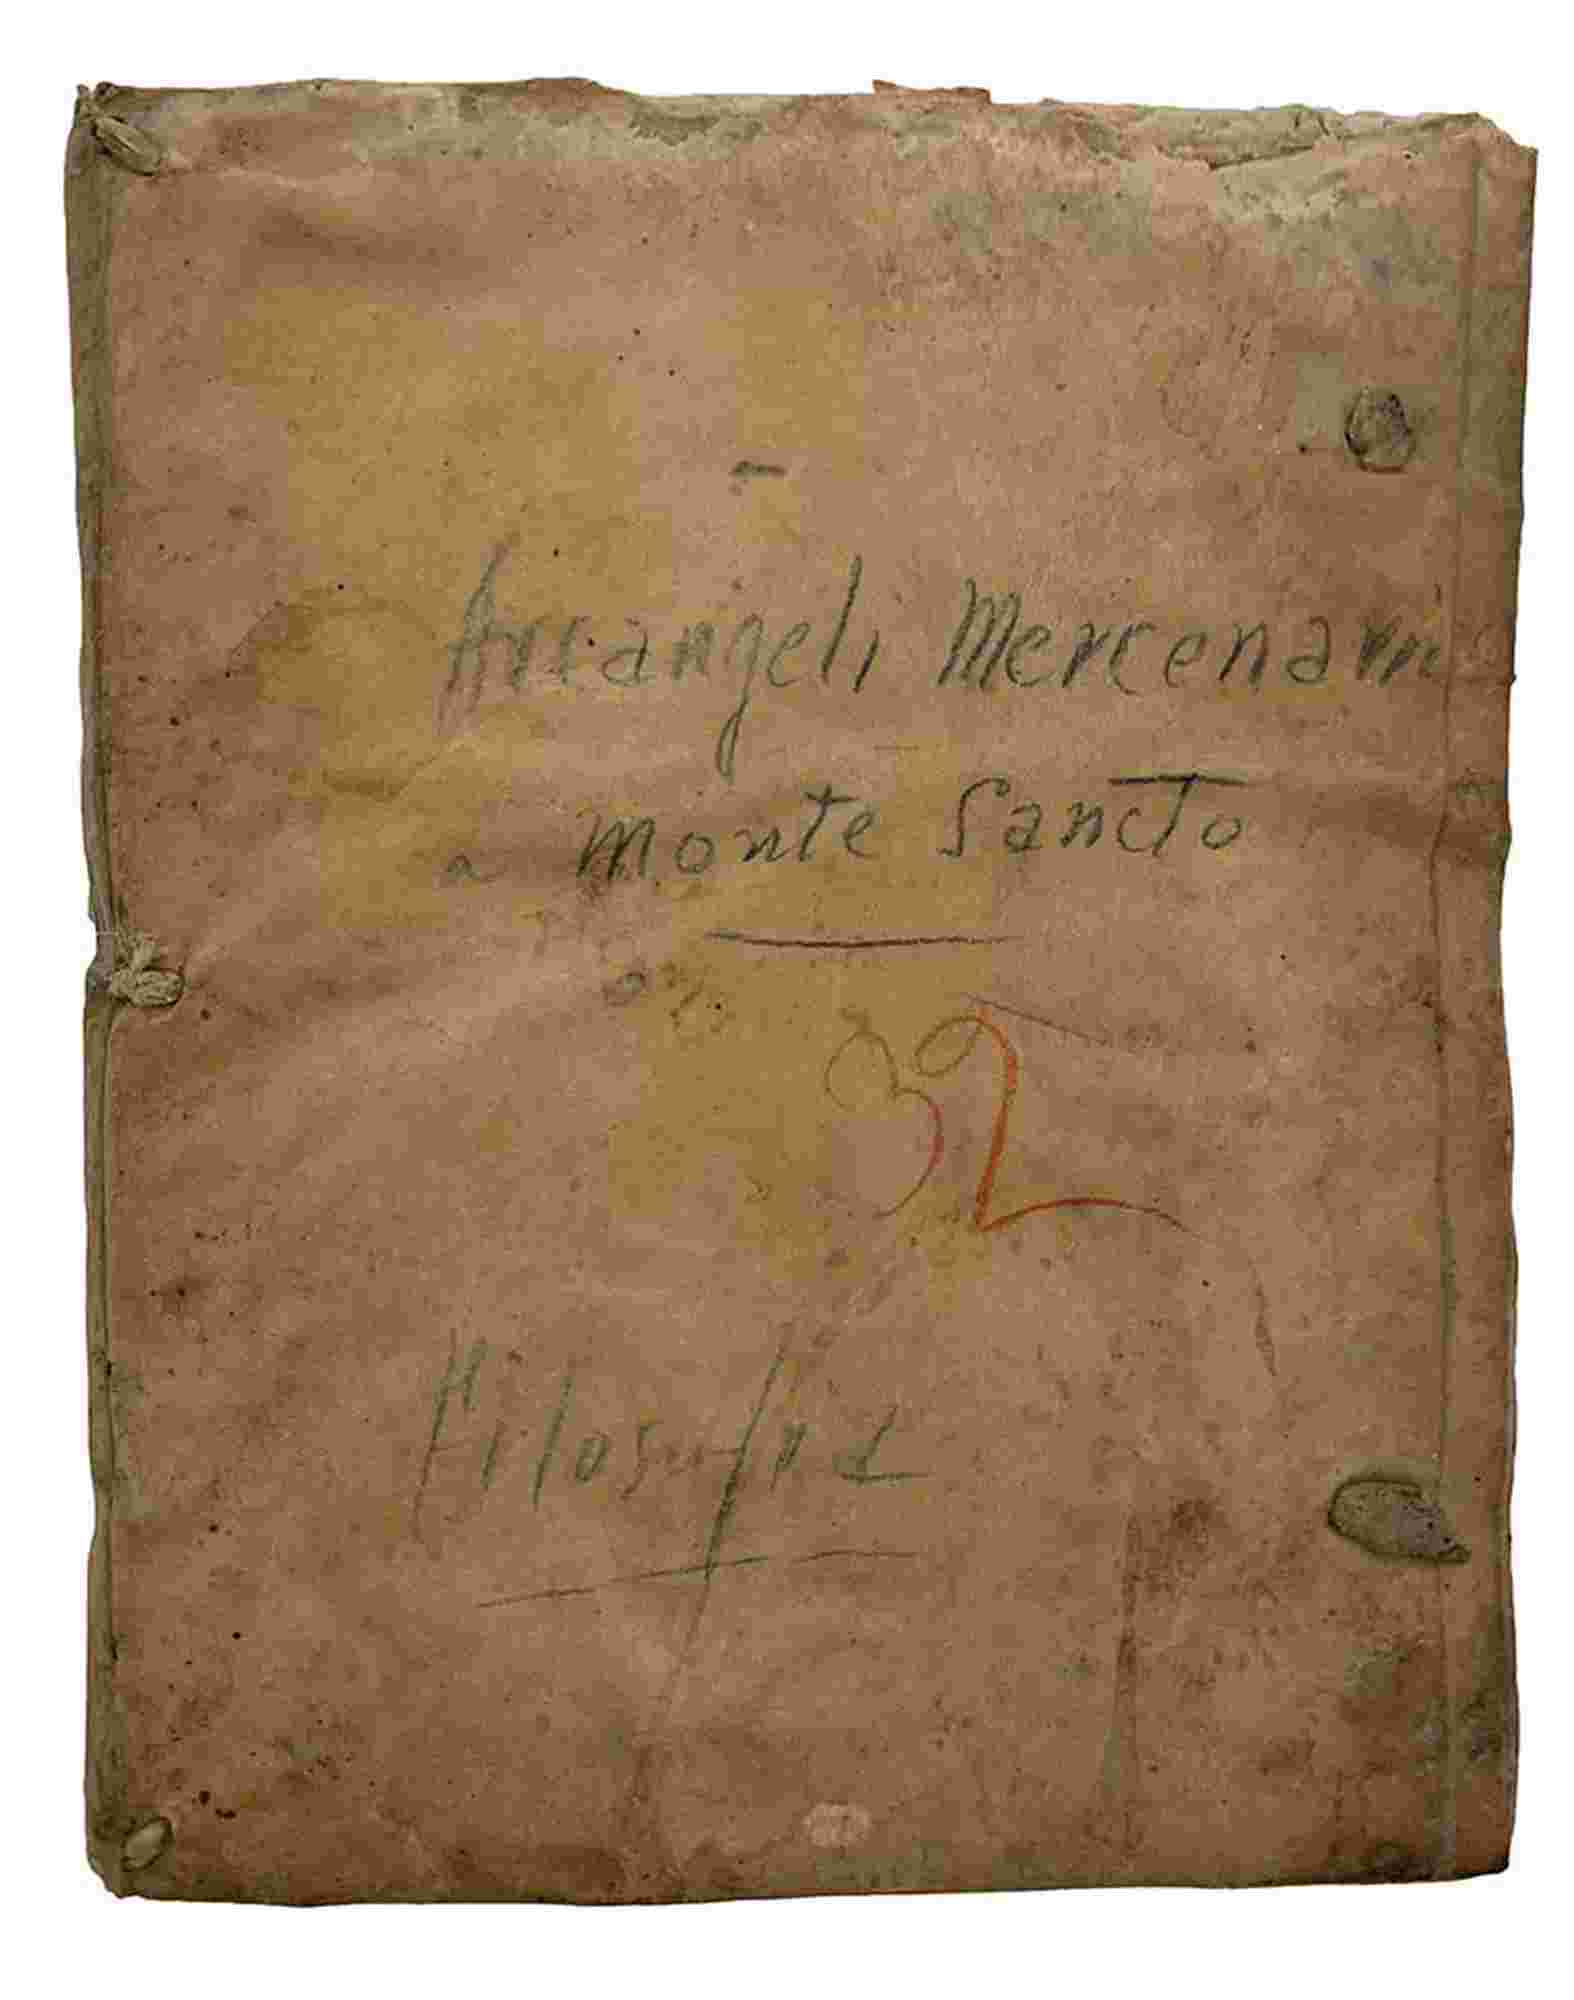 Arcangeli Mercenarii
a Monte Sancto
32
Filosofia